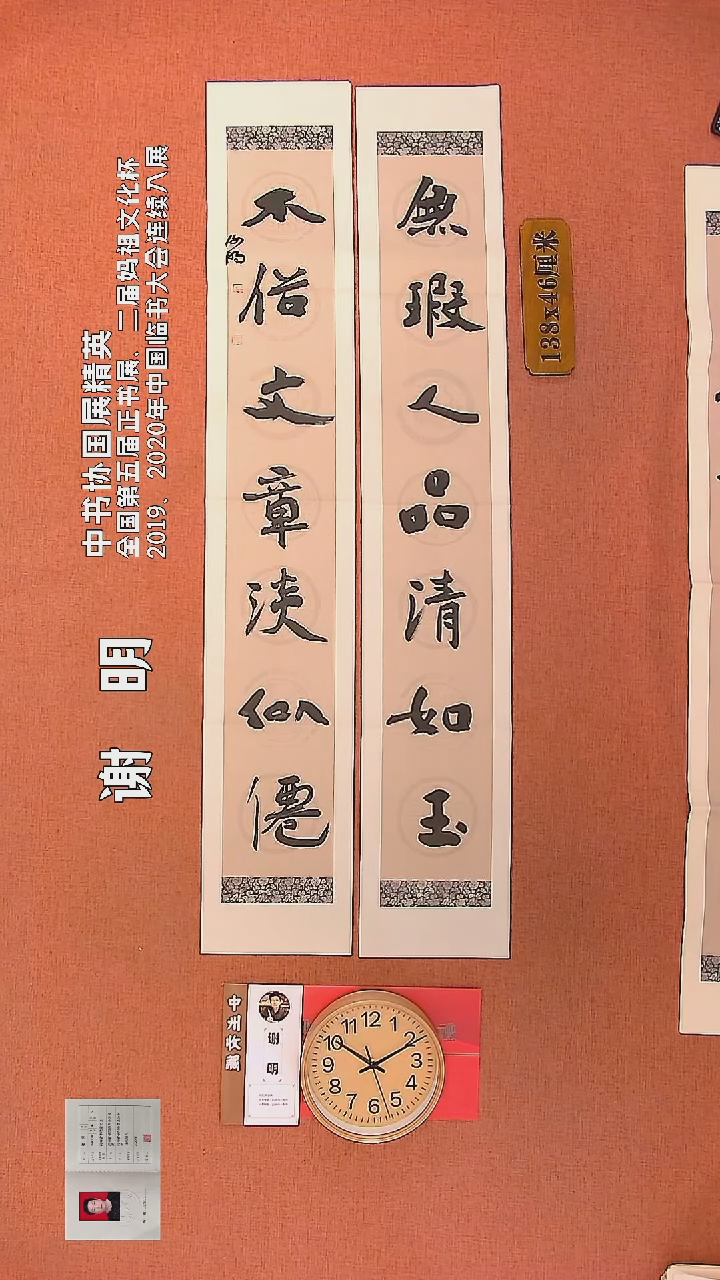 無瑕人品清如玉
不俗文章淡似僊
138x46厘米
中书协国展精英
全国第五届正书展、二届妈祖文化杯
2019、2020年中国临书大会连续入展
谢 明
中州收藏
12
1
2
3
4
5
6
7
8
9
10
11